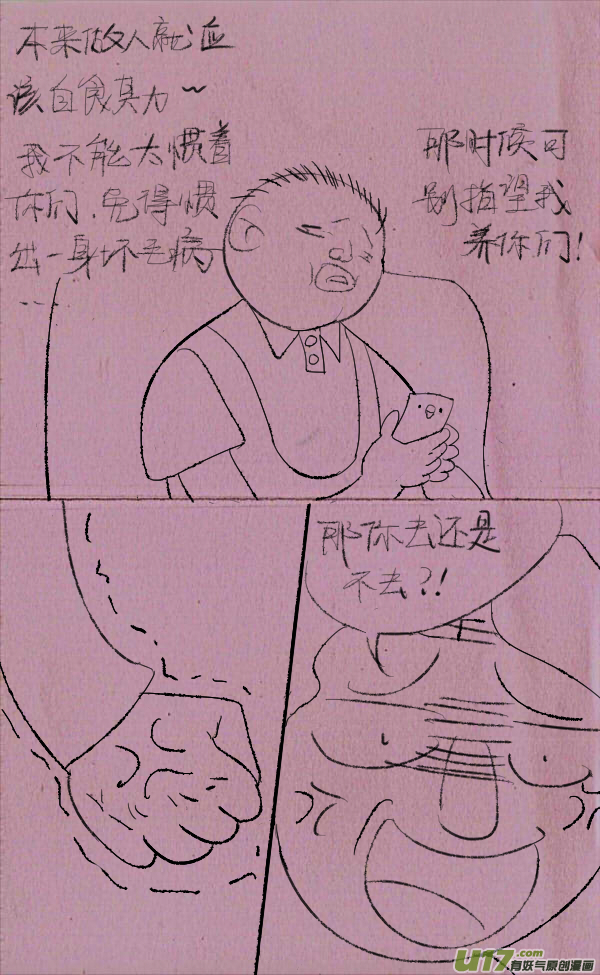 本来做人就应
该自食其力~
我不能太惯着
你们、免得惯
出一身坏毛病
……
那时候可
别指望我
养你们!
那你去还是
不去?!
U17.有妖气原创漫画